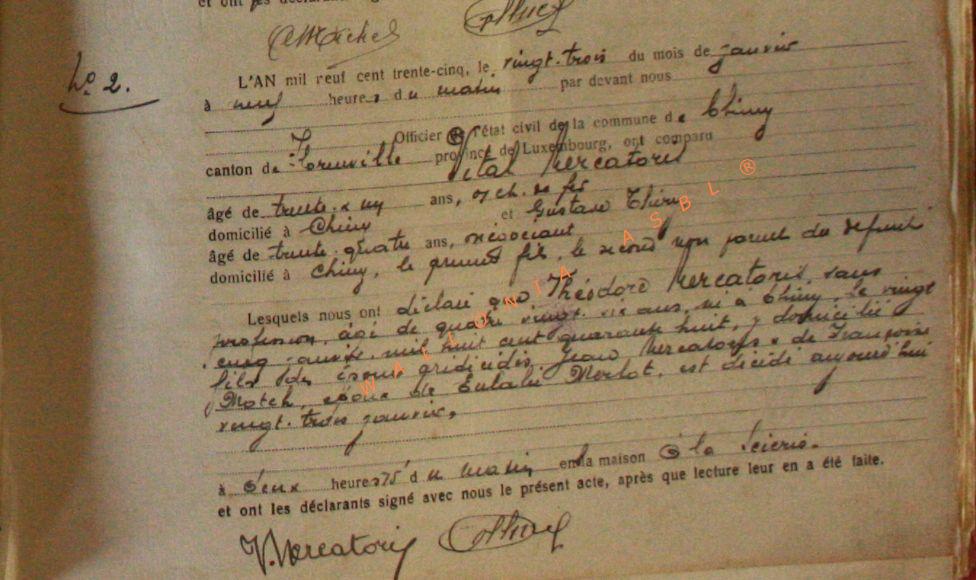 et ont les déclarants
No 2.
L'AN mil neuf cent trente-cinq, le vingt-trois du mois de janvier
à neuf heures du matin par devant nous
Officier de l'état civil de la commune de Chiny
canton de Florenville province de Luxembourg, ont comparu
Vital Mercatoris
âgé de trente & un ans, ch. de fer
domicilié à Chiny et Gustave Thiry
âgé de trente-quatre ans, négociant
domicilié à Chiny, le premier fils, le second non parent du défunt
Lesquels nous ont déclaré que Théodore Mercatoris, sans
profession, âgé de quatre-vingt-six ans, né à Chiny, le vingt
cinq mil huit cent quarante huit, y domicilié
fils des époux prédécédés Jean Mercatoris & de Françoise
époux de Eulalie Merlot, est décédé aujourd'hui
vingt-trois janvier,
à deux heures du matin en la maison à la Scierie.
et ont les déclarants signé avec nous le présent acte, après que lecture leur en a été faite.
V. Mercatoris
WALLONIA ASBL ®